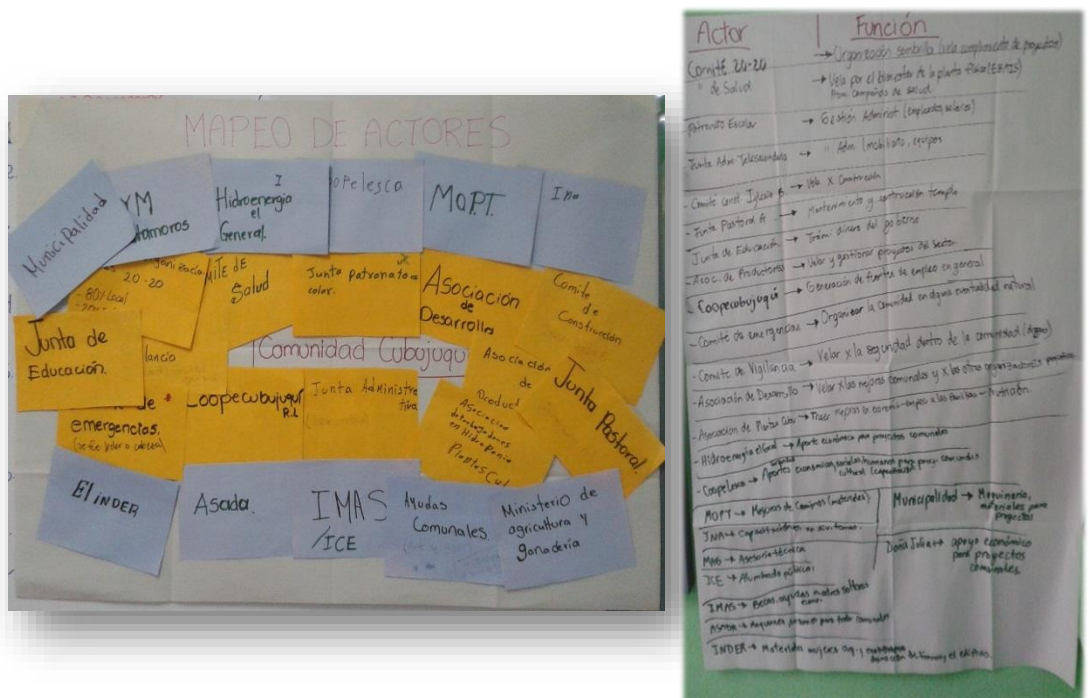 MAPEO DE ACTORES
Municipalidad
YM
tamoros
Hidroenergia
el
General.
opelesca
MOPT.
Ina
20-20
- 80% Local
Salud
Junta Patronato es
colar.
Asociación
de
Desarrollo
Comite
de
Construcción
Junta de
Educación.
lancia
Comunidad Cubujuquí
Asociación
de
Product
Junta Pastoral.
de
emergencias.
Coopecubujuquí
R.L
Junta Administra
tiva.
Asociación
de trabajadores
en Hidroponia
Plantas Cul
El INDER
Asada.
IMAS
/ICE
Ayudas
Comunales.
Ministerio de
agricultura y
ganadería
Actor | Función
Comité 20-20 → Organización sombrilla (vela cumplimiento de proyectos)
" de Salud → Vela por el bienestar de la planta física (EBAIS)
campañas de salud
Patronato Escolar → Gestión Administ (empleados, salarios)
- Junta Adm Telesecundaria → " Adm (mobiliario, equipos
- Comité Const Iglesia → Vela x Construcción
- Junta Pastoral → Mantenimiento y construcción templo
Junta de Educación → dinero del gobierno
- Asoc. de Productores → Velar y gestionar proyectos del sector
- Coopecubujuquí → Generación de fuentes de empleo en general
- Comité de emergencias → Organizar la comunidad en alguna eventualidad natural
- Comité de Vigilancia → Velar x la seguridad dentro de la comunidad
- Asociación de Desarrollo → Velar x las mejoras comunales y x las otras organizaciones
- Asociacion de → Traer mejoras a las familias - Nutrición.
- Hidroenergía el Gral → Aporte económico para proyectos comunales
- Coopelesca → Aportes
MOPT → Mejoras de Caminos (materiales)
INA → Capacitaciones
MAG → Asesoría técnica
ICE → Alumbrado público
IMAS → Becas, ayudas madres solteras
ASADA →
INDER → Materiales
Municipalidad → Maquinaria,
materiales para
proyectos
Doña Julia → apoyo económico
para proyectos
comunales